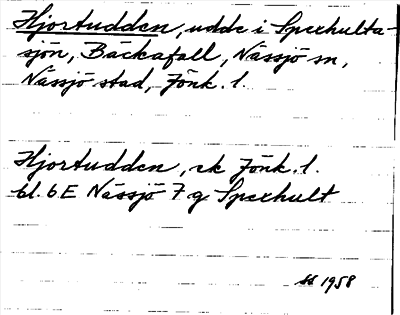 Hjortudden, udde i Sperhulta-
sjön, Bäckafall, Nässjö sn,
Nässjö stad, Jönk. l.
Hjortudden, ek Jönk. l.
bl. 6E Nässjö 7 g Sperhult
SS 1958